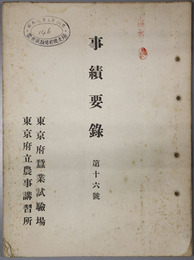 事績要錄
第十六號
東京府蠶業試驗場
東京府立農事講習所